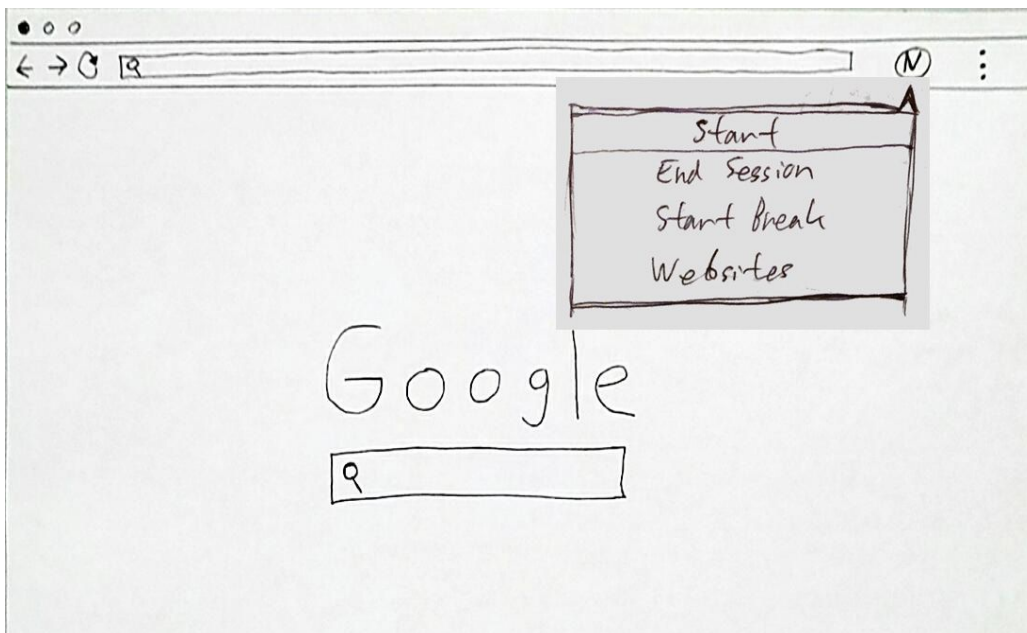 N
Start
End Session
Start Break
Websites
Google